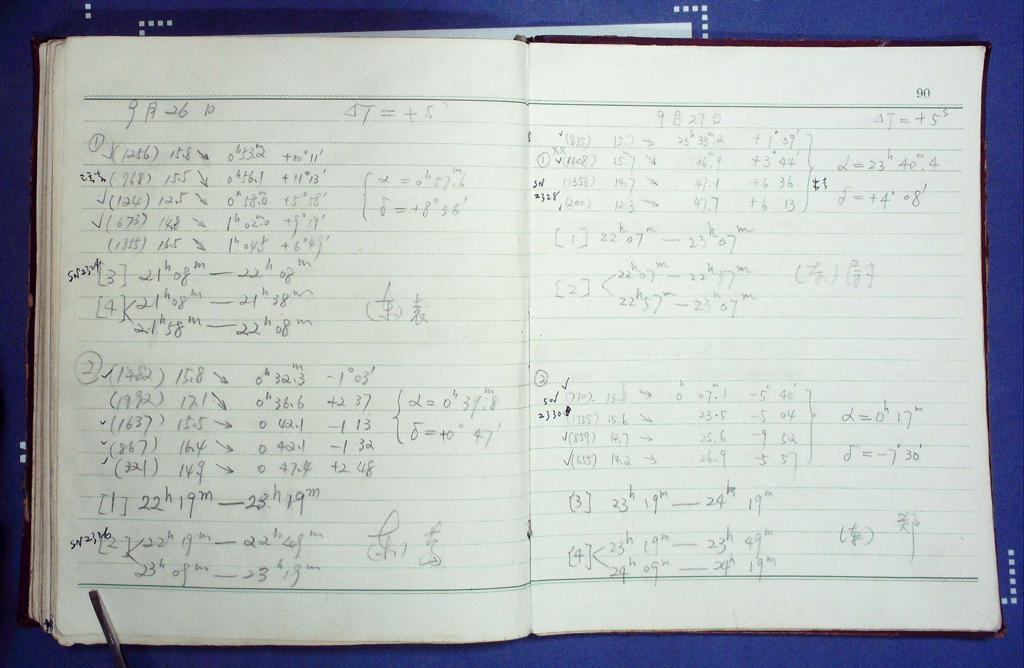 9月26日 ΔT = +5ˢ
① √(1256) 15.8 ↘ 0ʰ53ᵐ.2 +10°11′
(968) 15.5 ↘ 0ʰ56.1 +11°13′
√(124) 12.5 ↘ 0ʰ58.0 +5°58′
√(673) 14.8 ↘ 1ʰ02.0 +9°19′
(1855) 16.5 ↘ 1ʰ04.5 +6°49′
{ α = 0ʰ57ᵐ.6
δ = +8°36′
[3] 21ʰ08ᵐ — 22ʰ08ᵐ
[4] 21ʰ08ᵐ — 21ʰ38ᵐ
21ʰ58ᵐ — 22ʰ08ᵐ
② √(1482) 15.8 ↘ 0ʰ32ᵐ.3 -1°03′
(1992) 17.1 ↘ 0ʰ36.6 +2 37
√(1637) 15.5 ↘ 0 42.1 -1 13
√(867) 16.4 ↘ 0 42.1 -1 32
√(321) 14.9 ↘ 0 47.4 +2 48
{ α = 0ʰ39ᵐ.8
δ = +0°47′
[1] 22ʰ19ᵐ — 23ʰ19ᵐ
SN2326 [2] 22ʰ19ᵐ — 22ʰ49ᵐ
23ʰ09ᵐ — 23ʰ19ᵐ
90
9月27日 ΔT = +5ˢ
√(835) 15.7 → 23ʰ33ᵐ.2 +1°39′
① √(1408) 15.7 ↘ 46.9 +3°44′
SN2328 (1353) 14.7 → 47.1 +6 36
√(200) 12.3 → 47.7 +6 13
α = 23ʰ40ᵐ.4
δ = +4°08′
[1] 22ʰ07ᵐ — 23ʰ07ᵐ
[2] 22ʰ07ᵐ — 22ʰ37ᵐ
22ʰ57ᵐ — 23ʰ07ᵐ
② √
SN2330 (770) 13.8 → 0ʰ07ᵐ.1 -5°40′
√(1735) 15.6 → 23.5 -5 04
√(859) 14.7 → 25.6 -9 52
√(655) 14.2 → 26.9 -5 57
α = 0ʰ17ᵐ
δ = -7°30′
[3] 23ʰ19ᵐ — 24ʰ19ᵐ
[4] 23ʰ19ᵐ — 23ʰ49ᵐ
24ʰ09ᵐ — 24ʰ19ᵐ
郑